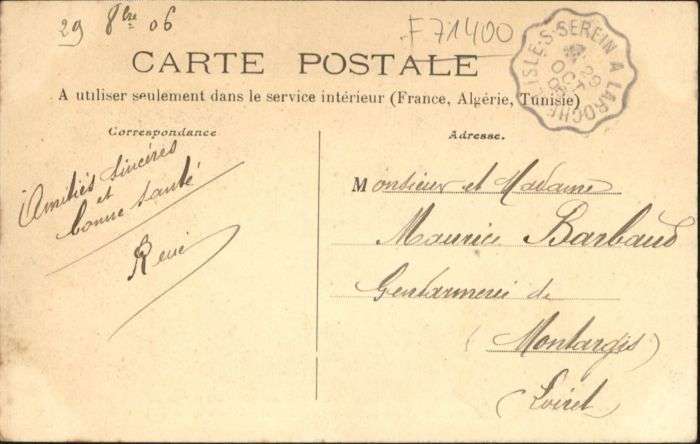 29 8bre 06
F 71400
ISLE-S-SEREIN A LAROCHE
29
OCT
06
CARTE POSTALE
A utiliser seulement dans le service intérieur (France, Algérie, Tunisie)
Correspondance
Amitiés sincères
et
bonne santé
René
Adresse.
Monsieur et Madame
Maurice Barbaud
Gendarmerie de
(Montargis)
Loiret